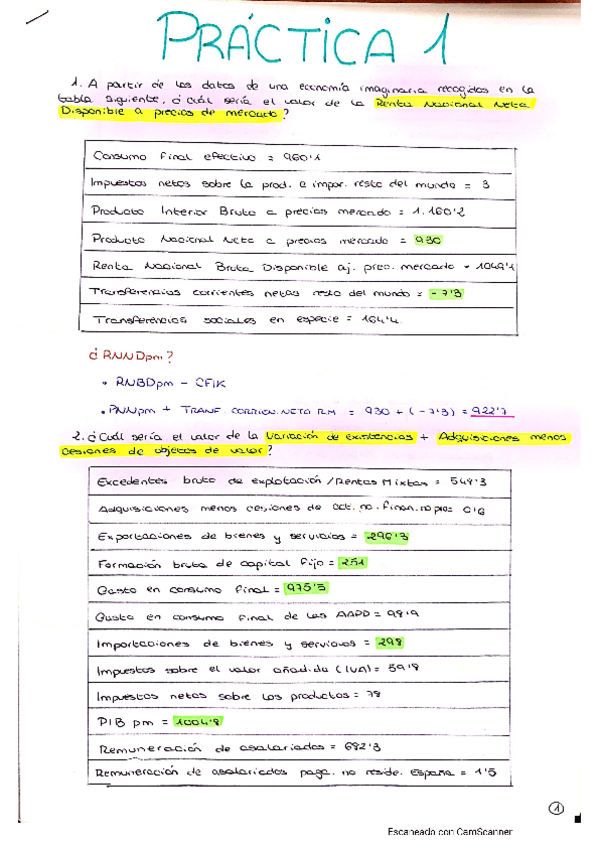 PRÁCTICA 1
1. A partir de los datos de una economía imaginaria recogidos en la
tabla siguiente, ¿Cuál sería el valor de la Renta Nacional Neta
Disponible a precios de mercado?
Consumo Final efectivo = 960'1
Impuestos netos sobre la prod. e impor. resto del mundo = 3
Producto Interior Bruto a precios mercado = 1.160'2
Producto Nacional Neto a precios mercado = 930
Renta Nacional Bruta Disponible aj. prec. mercado = 1049'1
Transferencias corrientes netas resto del mundo = -7'3
Transferencias sociales en especie = 164'4
¿RNNDpm?
• RNBDpm - CFIK
• PNNpm + TRANF. CORRIEN. NETA RM = 930 + (-7'3) = 922'7
2. ¿Cuál sería el valor de la Variación de existencias + Adquisiciones menos
cesiones de objetos de valor?
Excedentes bruto de explotación / Rentas Mixtas = 548'3
Adquisiciones menos cesiones de act. no. finan. no pro = 0'6
Exportaciones de bienes y servicios = 296'3
Formación bruta de capital fijo = 251
Gasto en consumo final = 975'5
Gasto en consumo final de las AAPP = 98'9
Importaciones de bienes y servicios = 298
Impuestos sobre el valor añadido (IVA) = 59'8
Impuestos netos sobre los productos = 78
PIB pm = 1004'8
Remuneración de asalariados = 682'3
Remuneración de asalariados paga. no reside. España = 1'5
1
Escaneado con CamScanner